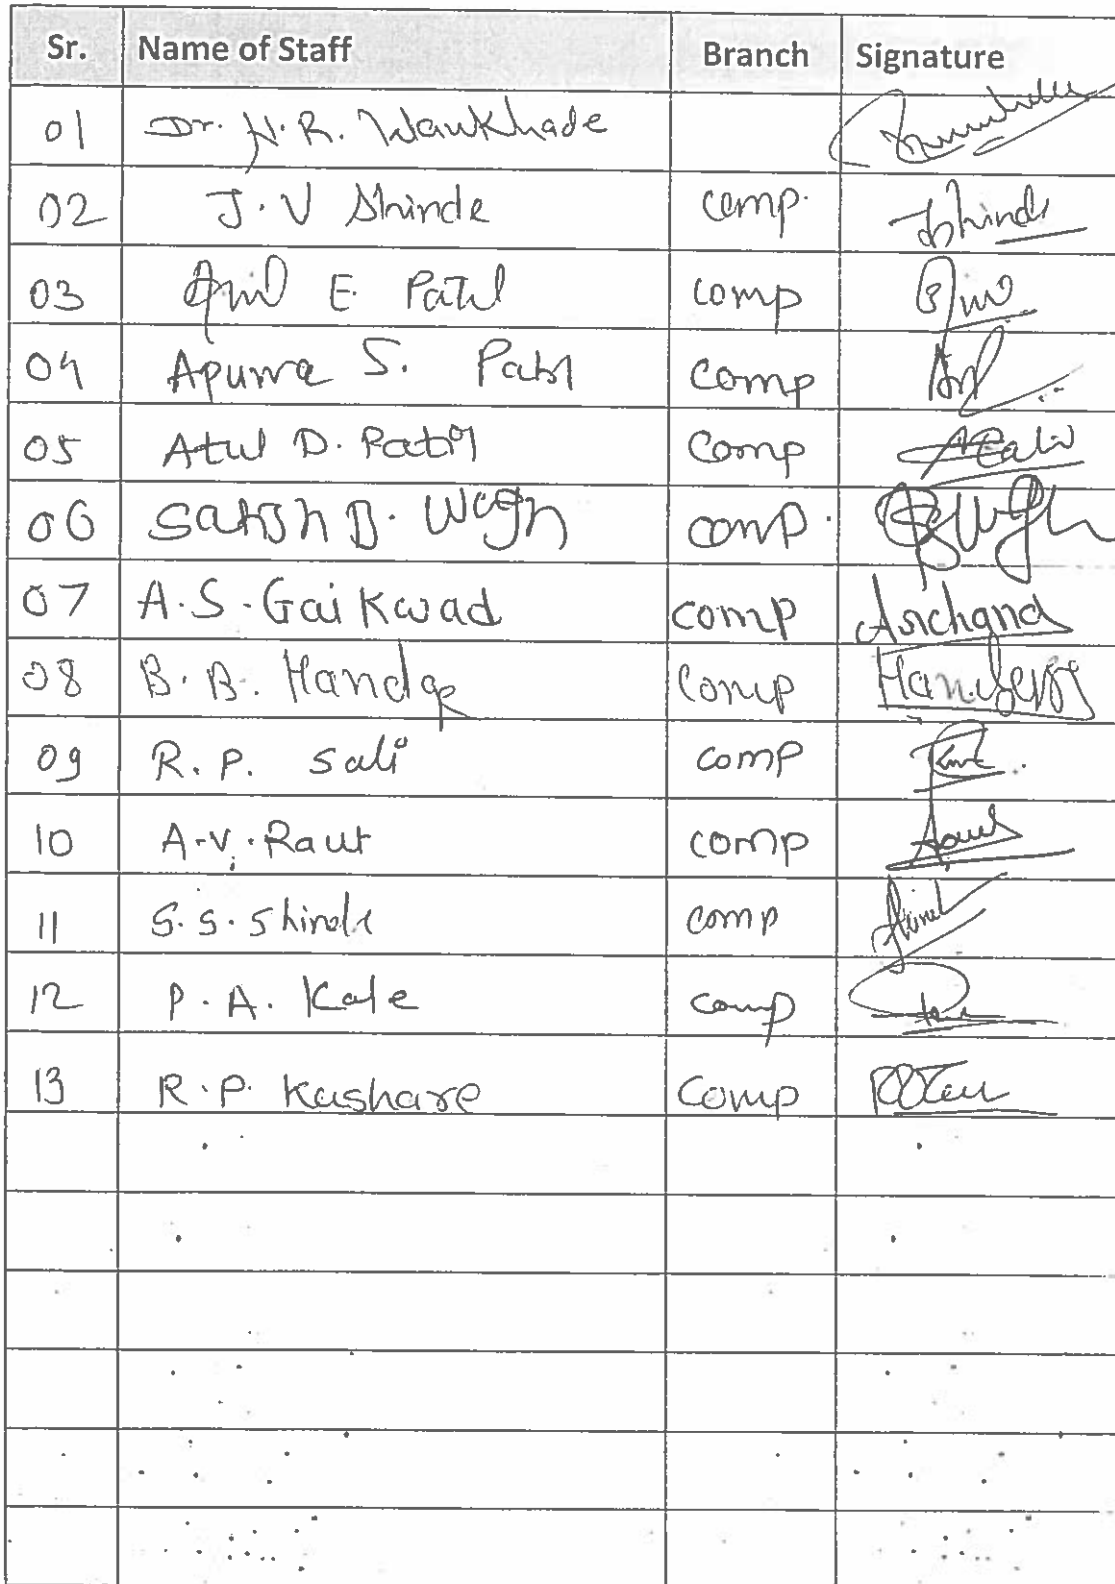 Sr. Name of Staff Branch Signature
01 Dr. N.R. Wankhade
02 J.V Shinde comp. Jshinde
03 Anil E. Patil comp
04 Apurva S. Patil comp
05 Atul D. Patil comp
06 Satish B. Wagh comp.
07 A.S. Gaikwad comp
08 B.B. Handge comp
09 R.P. Sali comp
10 A.V. Raut comp
11 S.S. Shinde comp
12 P.A. Kale comp
13 R.P. Kashare comp